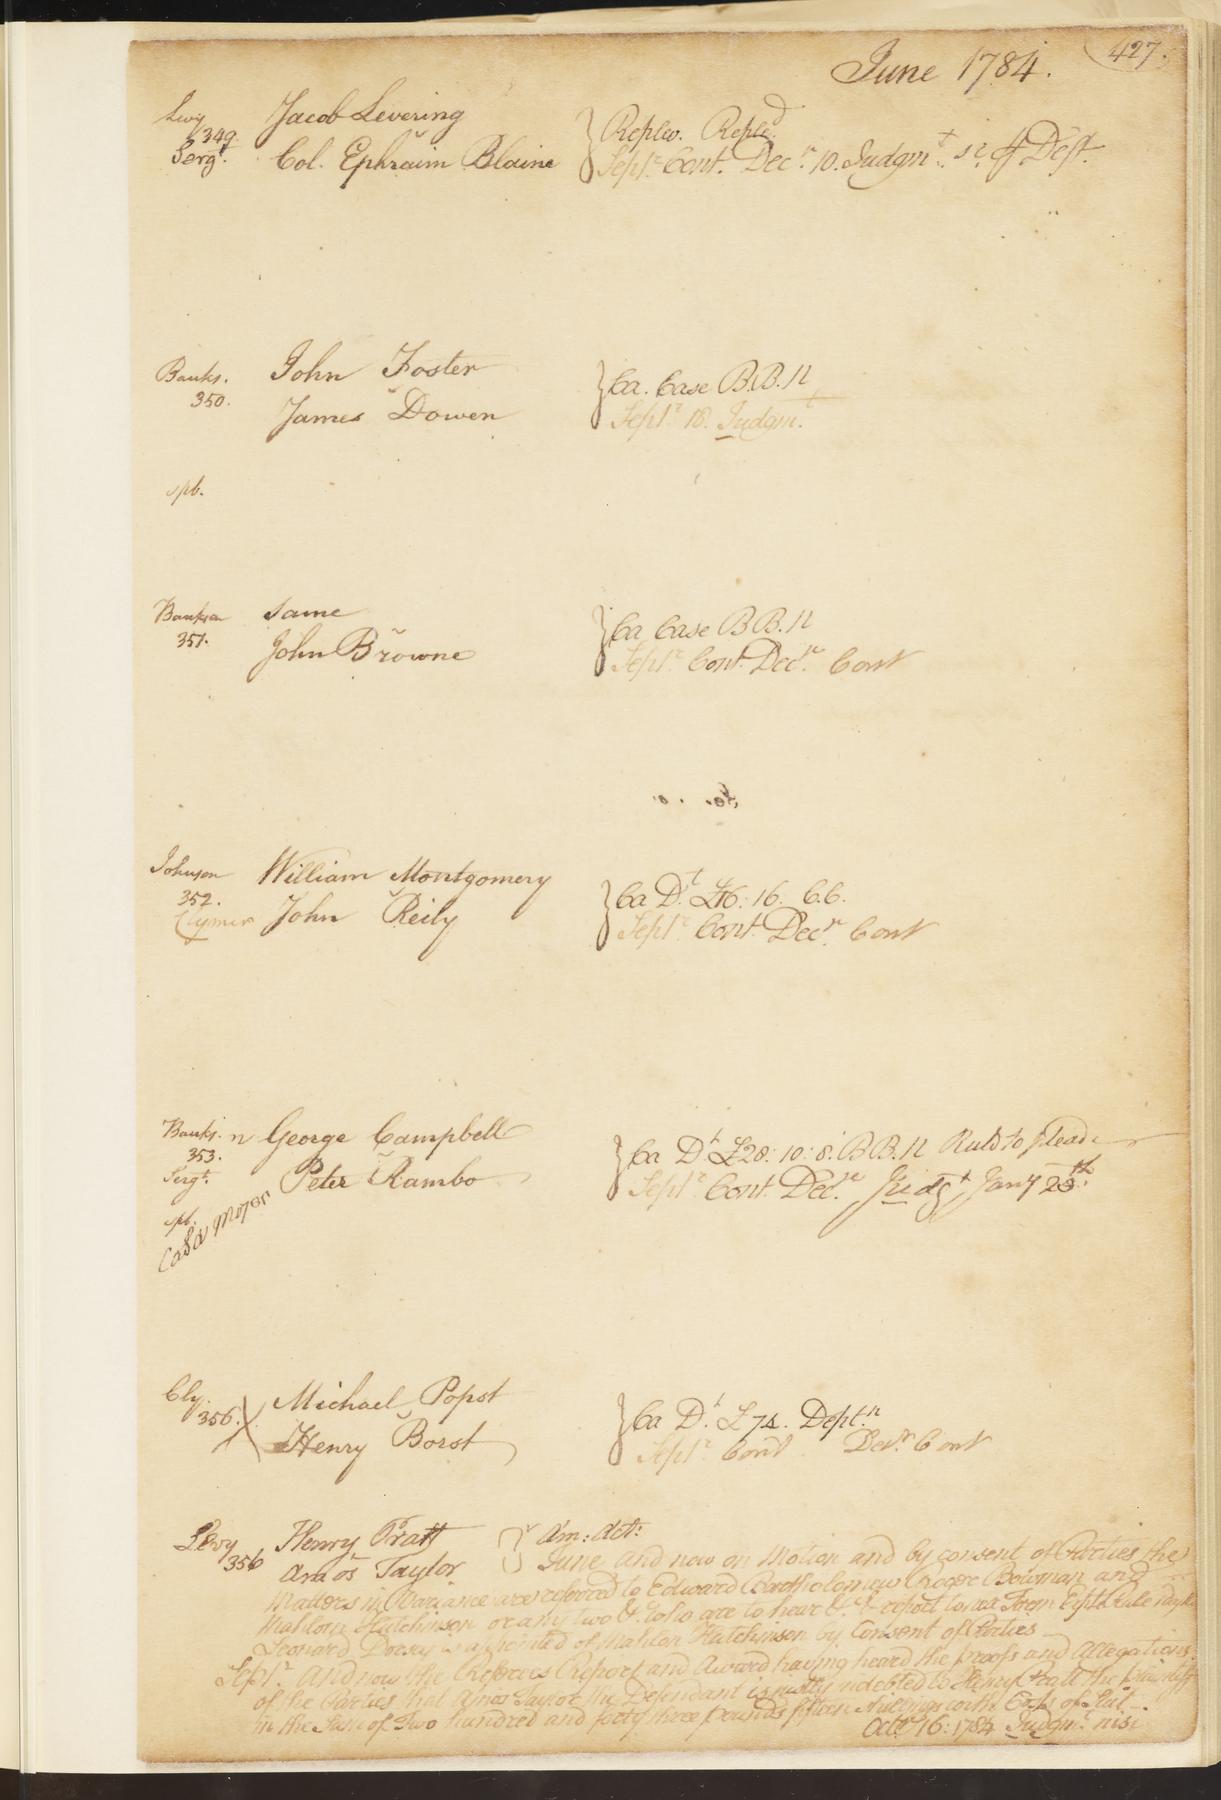 June 1784. 427.
Levy Jacob Levering
349. Replev. Replev.d
Sergt. Col. Ephraim Blaine Septr. Cont. Decr. 10. Judgmt. Deft.
Banks. John Foster Ca. Case B.B. 11
350. James Dowen Septr. 18. Judgmt.
spb.
Bankson Same Ca Case B B. 11
351. John Browne Septr. Cont. Decr. Cont
Johnson William Montgomery
352. Ca Dt. £16: 16. 66.
Clymer John Reily Septr. Cont. Decr. Cont
Banks. n George Campbell Ca Dt. £28: 10: 8. B B. 11 Ruld to plead
353.
Sergt. Peter Rambo Septr. Cont. Decr. Judgt Jany 25th.
spb.
Casa Mayor
Cly. Michael Popst
356. Ca Dt. £74. Dept.n
Henry Borst Septr. Cont Decr. Cont
Levy Henry Pratt Am: Act:
356 Amos Taylor June and now on Motion and by consent of Parties the
Matters in Variance are referred to Edward Bartholomew Roger Bowman and
Mahlon Hutchinson or any two &c. who are to hear &c. & report to next Term
Leonard Dorsey is appointed of Mahlon Hutchinson by Consent of Parties
Septr. And now the Referees Report and Award having heard the proofs and Allegations
of the Parties that Amos Taylor the Defendant is justly indebted to Henry Pratt the plaintiff
in the Sum of Two hundred and forty three pounds fifteen Shillings with Costs of Suit
Octr. 16: 1784 Judgmt. nisi